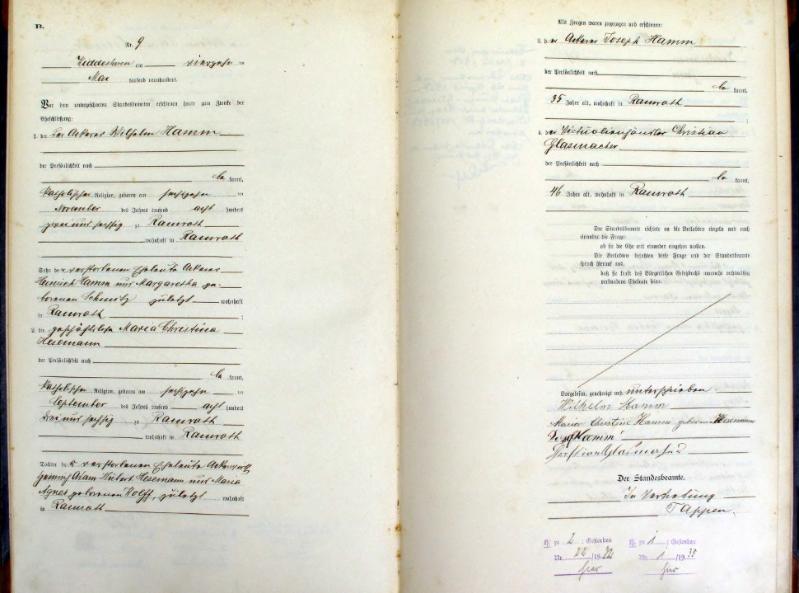 Nr. 9
am vierzehn ten
Mai tausend neunhundert
Vor dem unterzeichneten Standesbeamten erschienen heute zum Zwecke der
Eheschließung:
1. der Ackerer Wilhelm Hamm
der Persönlichkeit nach
be kannt,
katholischer Religion, geboren am sechszehn ten
November des Jahres tausend acht hundert
zwei und sechzig zu Ramrath
, wohnhaft in Ramrath
Sohn der verstorbenen Eheleute Ackerer
Heinrich Hamm und Margaretha ge-
borenen Schmitz zuletzt wohnhaft
in Ramrath ;
2. die geschäftslose Maria Christina
der Persönlichkeit nach
be kannt,
katholischer Religion, geboren am sechszehn ten
September des Jahres tausend acht hundert
drei und sechzig zu Ramrath
, wohnhaft in Ramrath
Tochter der verstorbenen Eheleute Ackerer
Adam Hubert und Maria
Agnes geborenen Wolff, zuletzt wohnhaft
in Ramrath
Als Zeugen waren zugezogen und erschienen:
3. der Ackerer Joseph Hamm
der Persönlichkeit nach
be kannt,
35 Jahre alt, wohnhaft in Ramrath
4. der Victualienhändler Christian
Glasmacher
der Persönlichkeit nach
be kannt,
46 Jahre alt, wohnhaft in Ramrath
Der Standesbeamte richtete an die Verlobten einzeln und nach
einander die Frage:
ob sie die Ehe mit einander eingehen wollen.
Die Verlobten bejahten diese Frage und der Standesbeamte
sprach hierauf aus,
daß sie kraft des Bürgerlichen Gesetzbuchs nunmehr rechtmäßig
verbundene Eheleute seien.
Vorgelesen, genehmigt und unterschrieben
Wilhelm Hamm
Maria Christine Hamm geborene
Josef Hamm
Christian Glasmacher
Der Standesbeamte.
In Vertretung
Tappen.